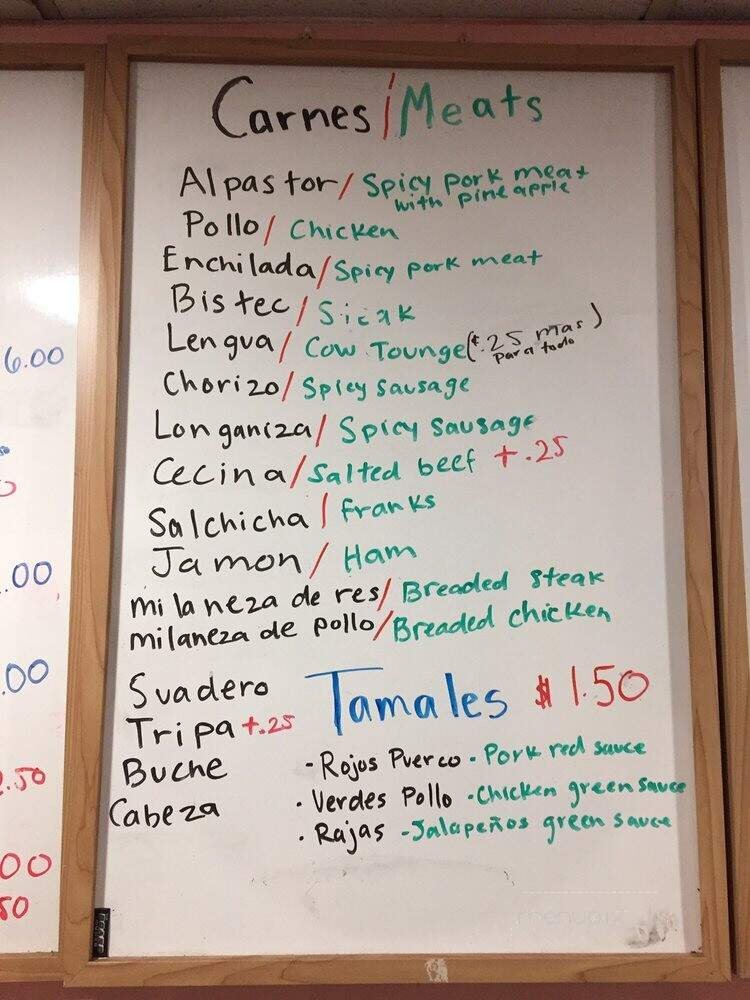 Carnes/Meats
Al pastor/Spicy pork meat
with pineapple
Pollo/Chicken
Enchilada/Spicy pork meat
Bistec/Steak
Lengua/Cow Tounge($.25 mas
para todo)
Chorizo/Spicy sausage
Longaniza/Spicy sausage
Cecina/Salted beef +.25
Salchicha/Franks
Jamon/Ham
milaneza de res/Breaded steak
milaneza de pollo/Breaded chicken
Suadero
Tripa +.25
Buche
Cabeza
Tamales $1.50
- Rojos Puerco - Pork red sauce
- Verdes Pollo - Chicken green sauce
- Rajas - Jalapeños green sauce
6.00
.00
.00
.50
00
50
menupix